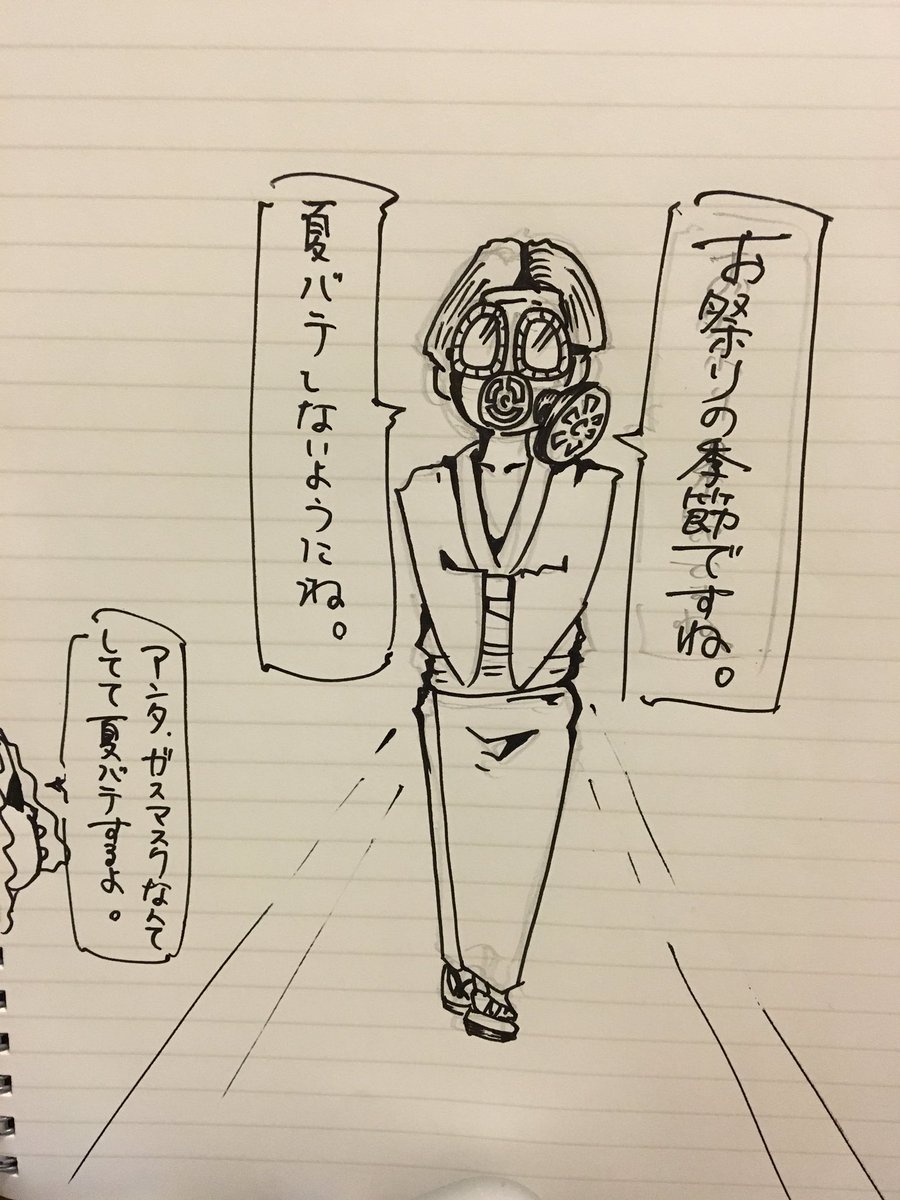 お祭りの季節ですね。
夏バテしないようにね。
アンタ、ガスマスクなんて
してて夏バテするよ。